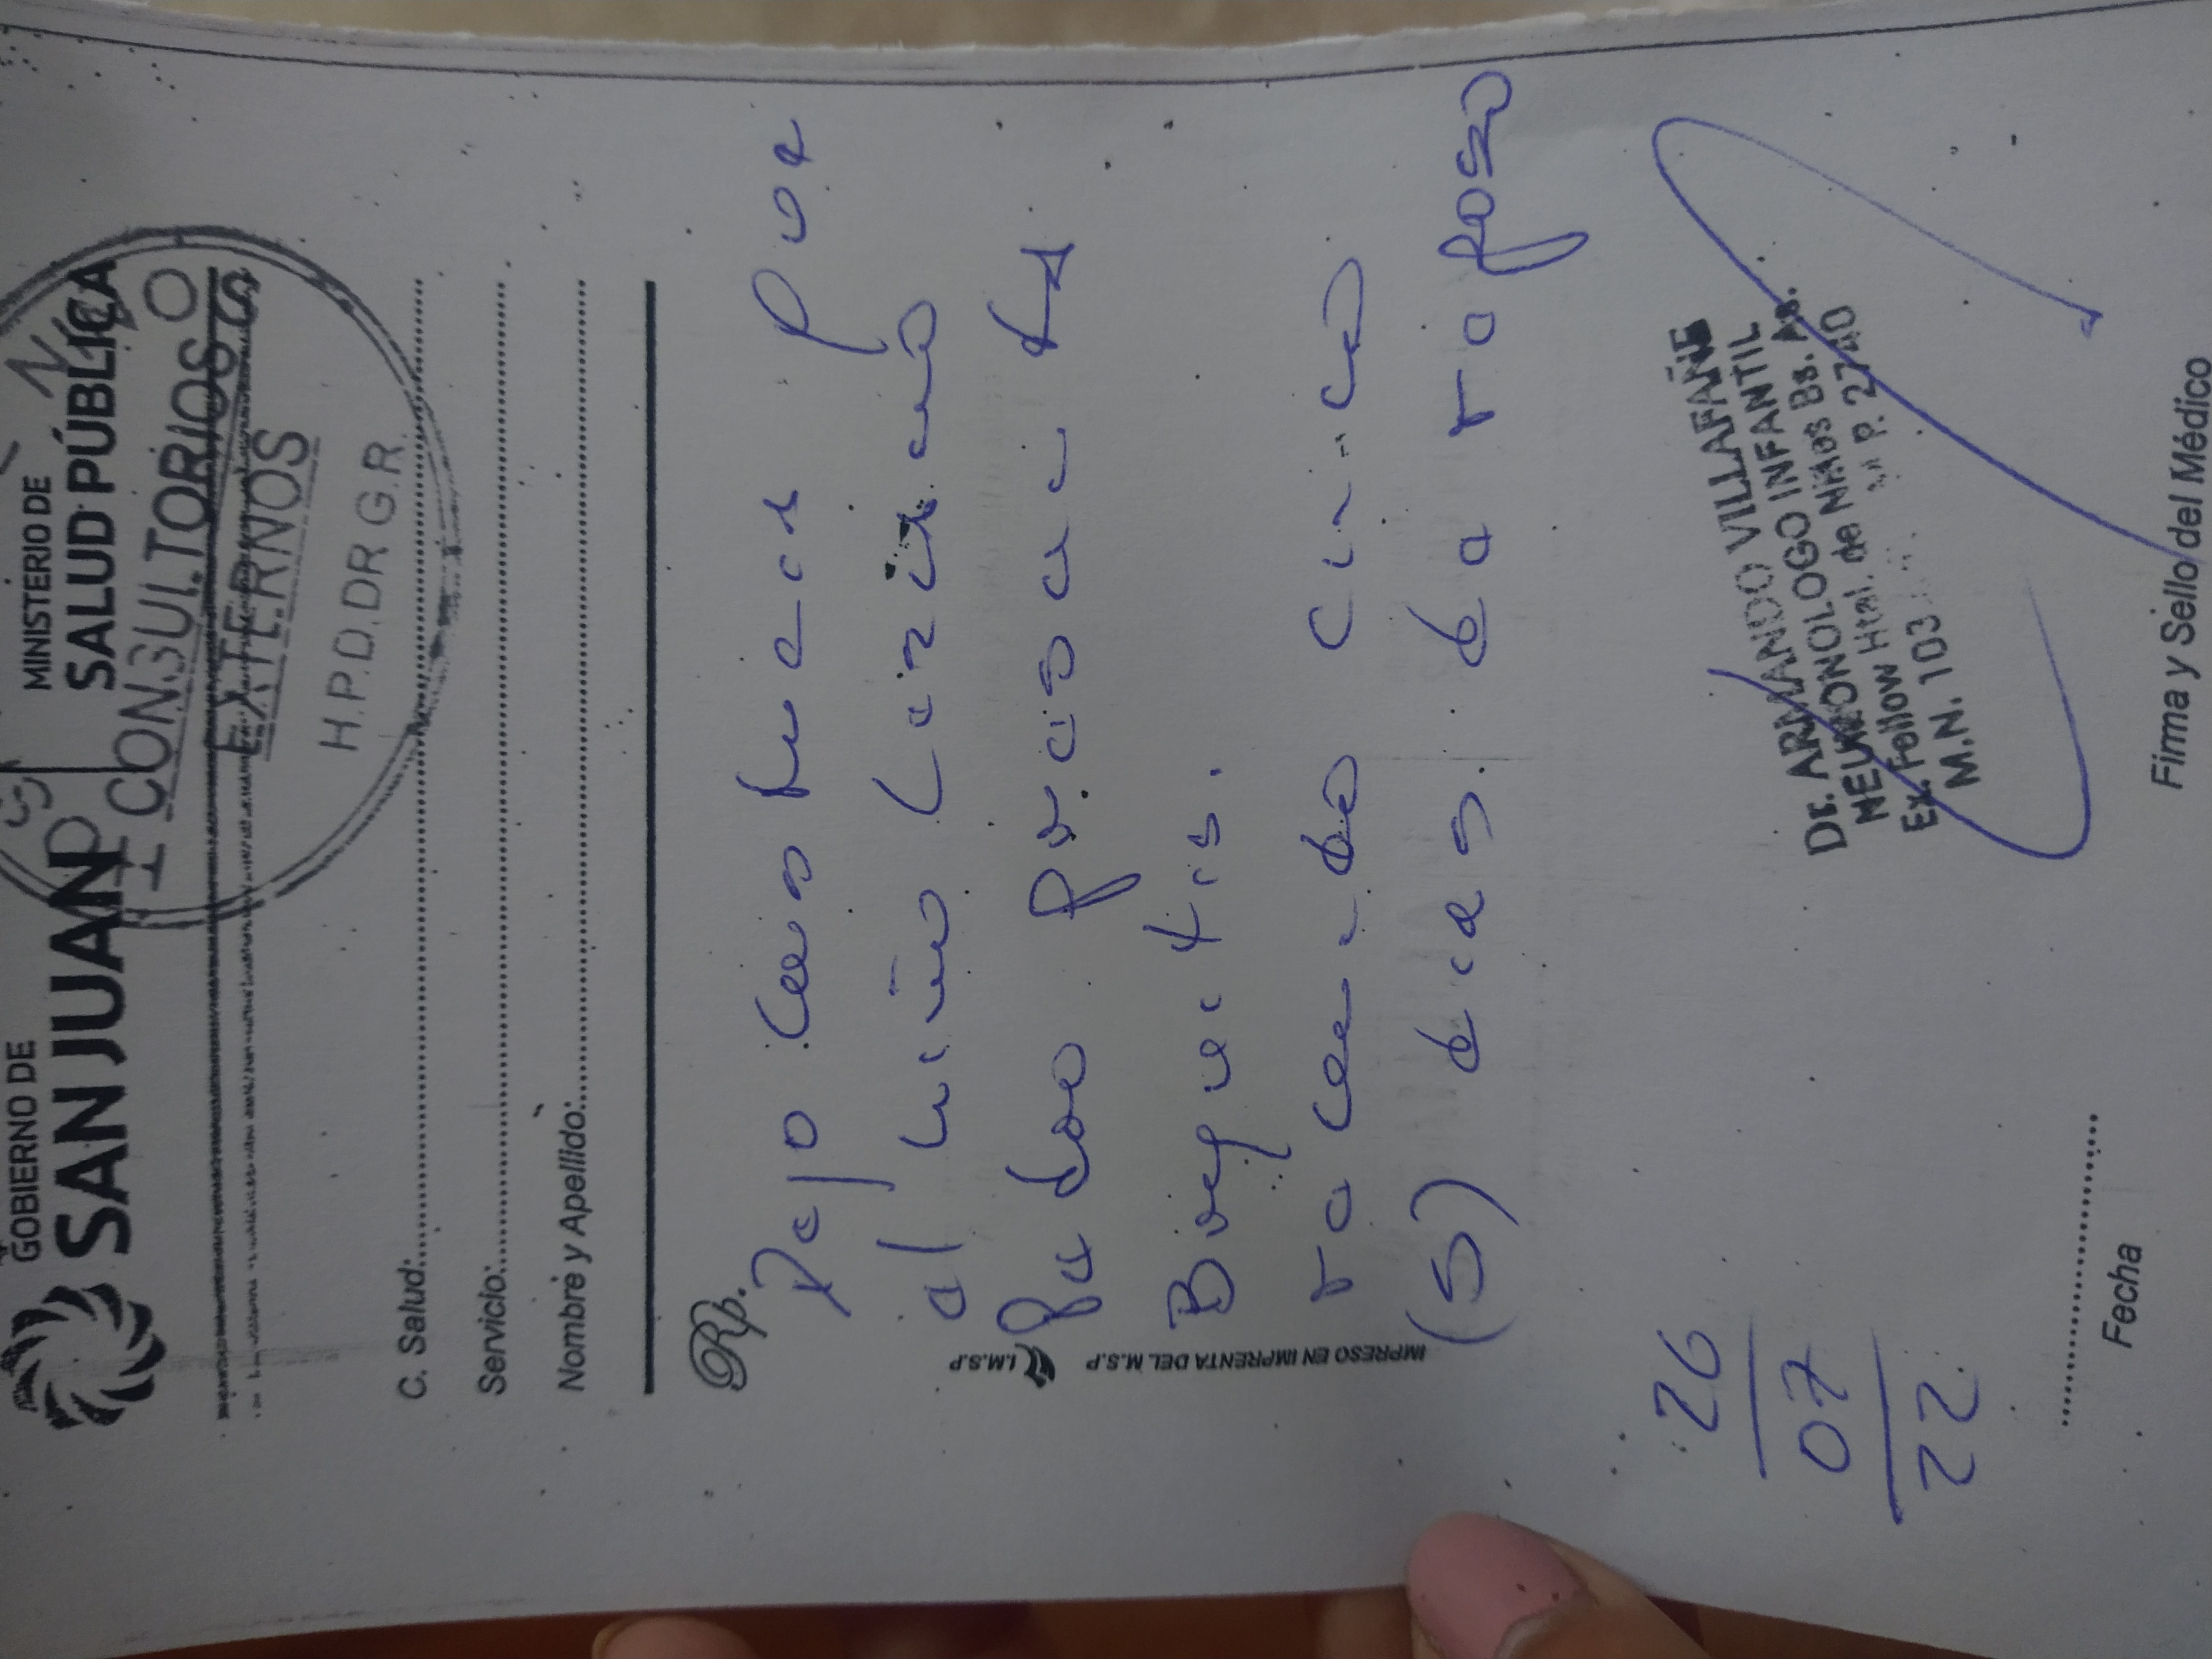 GOBIERNO DE
SAN JUAN
MINISTERIO DE
SALUD PÚBLICA
CONSULTORIOS
EXTERNOS
H.P.D.DR G.R.
C. Salud:
Servicio:
Nombre y Apellido:
Rp.
Dejo constancia por
el niño Lazaro
presenta
Bronquitis.
cinco
(5) dias de reposo
26
07
22
Dr. ARMANDO VILLAFAÑE
NEUMONOLOGO INFANTIL
Ex. Fellow Htal. de Niños Bs. As.
M.N. 103 M.P. 2740
Fecha
Firma y Sello del Médico
I.M.S.P
IMPRESO EN IMPRENTA DEL M.S.P